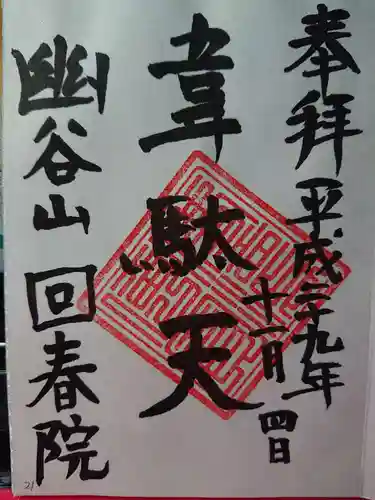 奉拝
平成二十九年
十一月四日
韋駄天
幽谷山
回春院
21